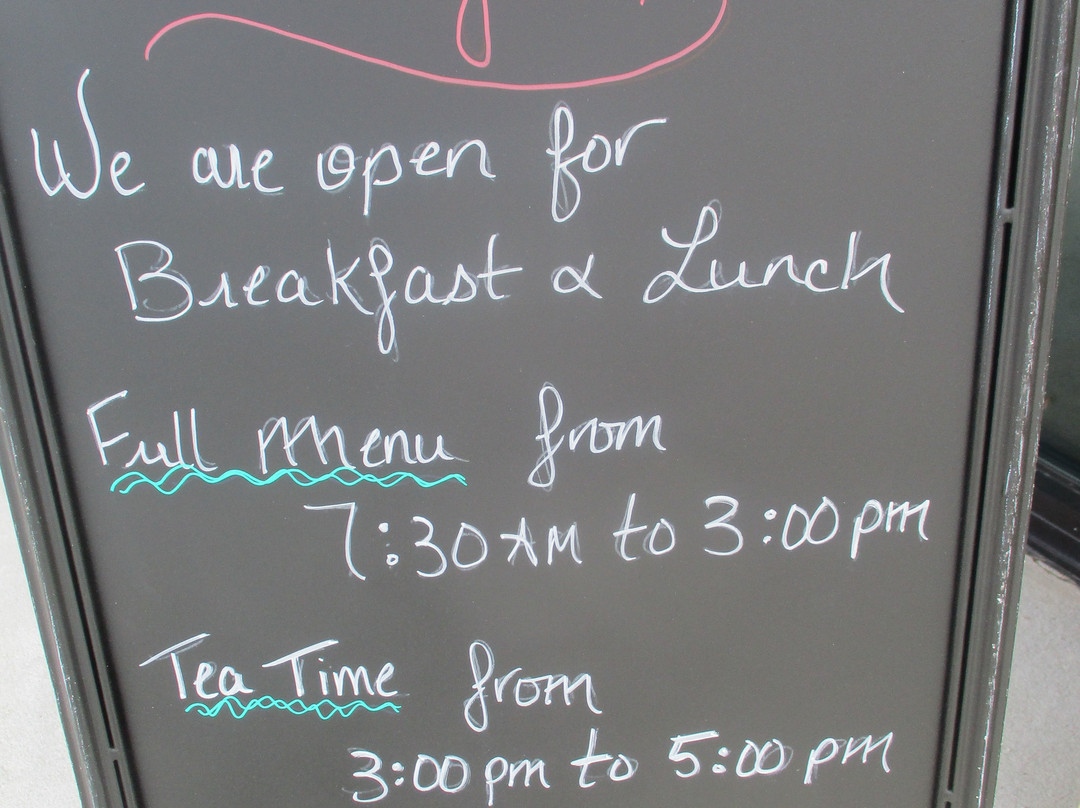 We are open for
Breakfast & Lunch
Full Menu from
7:30 AM to 3:00 pm
Tea Time from
3:00 pm to 5:00 pm